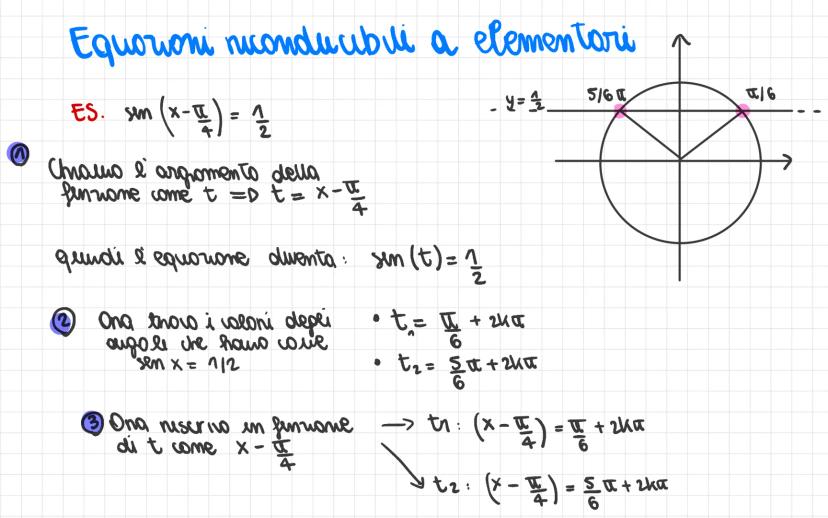 Equazioni riconducibili a elementari
ES. sen (x - π/4) = 1/2
y = 1/2
5/6 π
π/6
1 Chiamo l'argomento della
funzione come t => t = x - π/4
quindi l'equazione diventa: sen (t) = 1/2
2 Ora trovo i valori degli
angoli che hanno come
sen x = 1/2
• t1 = π/6 + 2kπ
• t2 = 5/6 π + 2kπ
3 Ora riscrivo in funzione
di t come x - π/4
→ t1 : (x - π/4) = π/6 + 2kπ
↘ t2 : (x - π/4) = 5/6 π + 2kπ